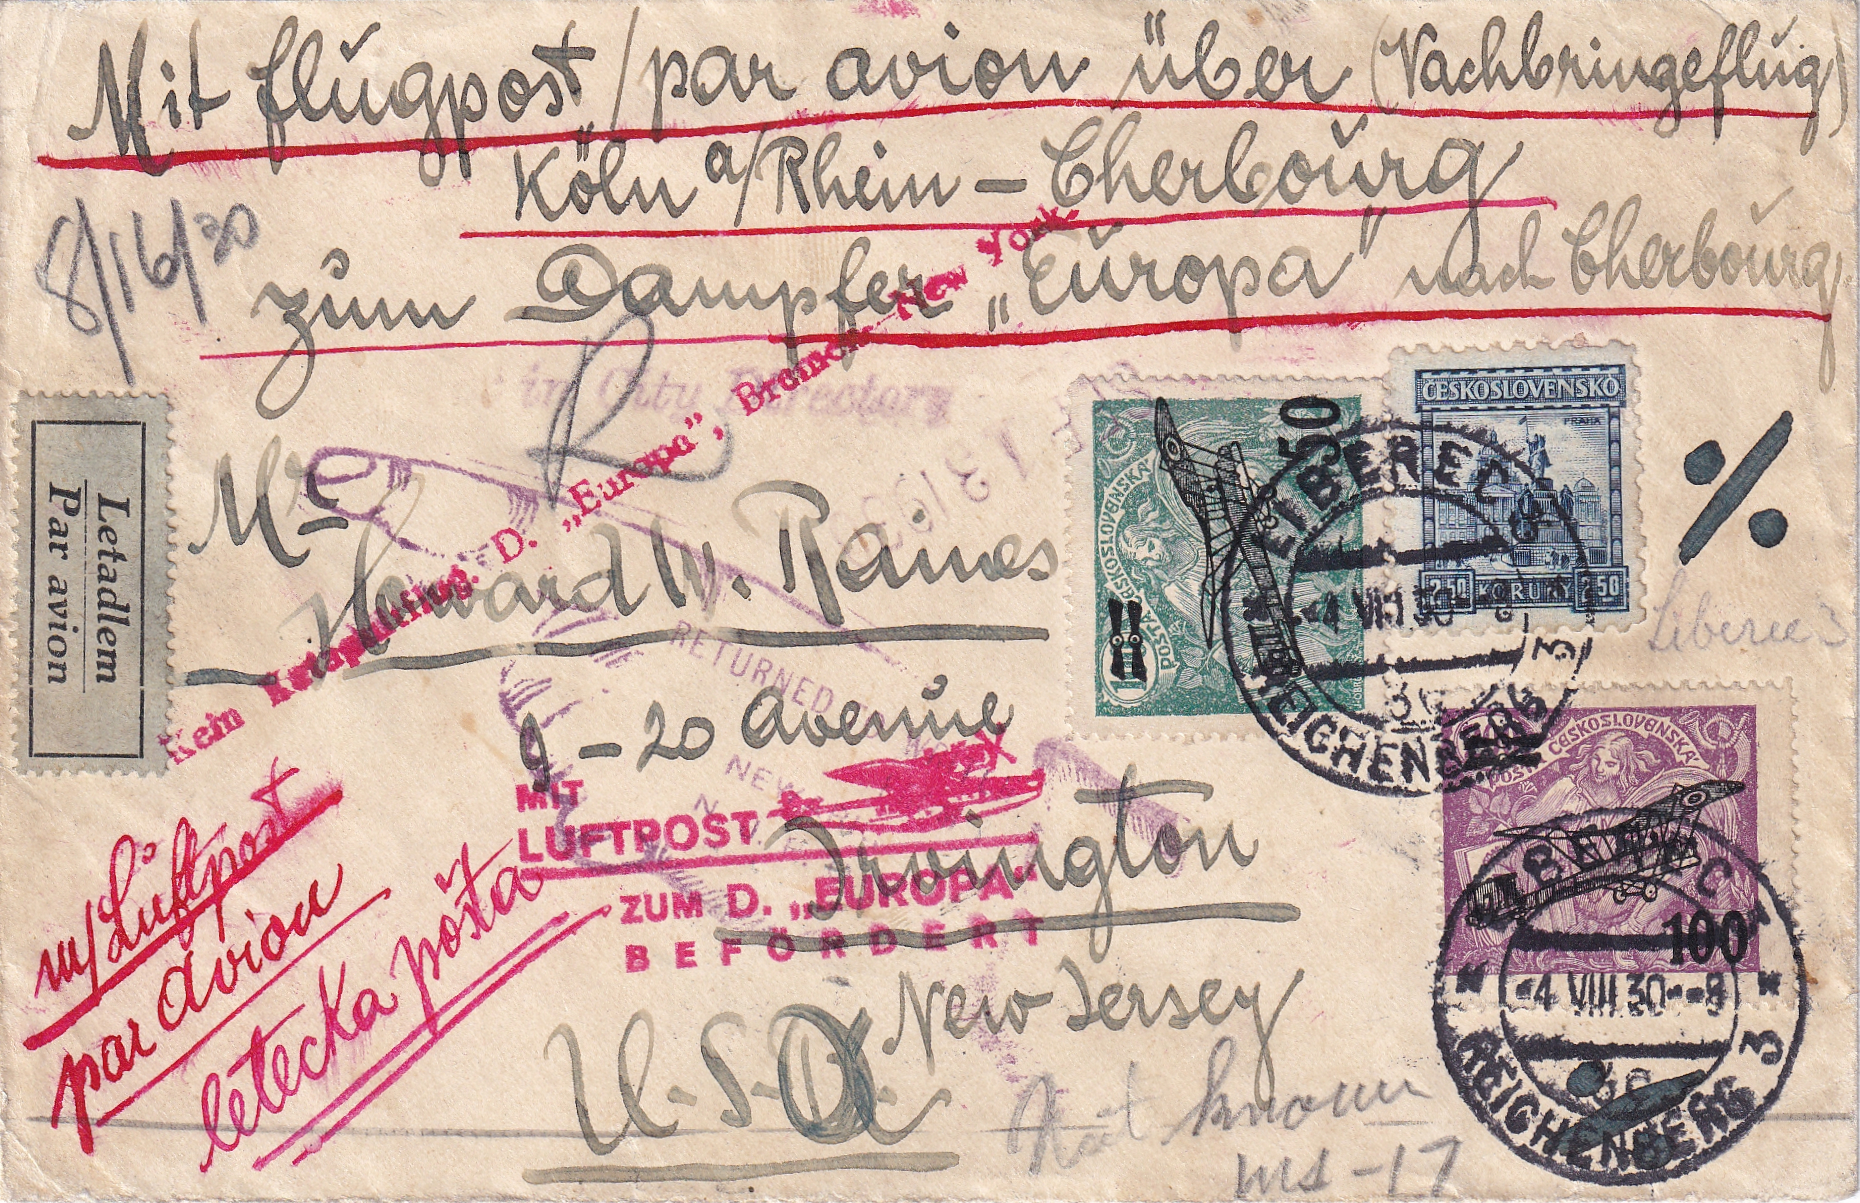 Mit Flugpost/par avion über (Nachbringeflug)
Köln a/Rhein – Cherbourg
zum Dampfer „Europa" nach Cherbourg.
8/16/30
R
in City Directory
Kein Katapultflug. D. „Europa", Bremen–New York.
Letadlem
Par avion
Mr
Howard W. Raines
9 – 20 Avenue
Irvington
New Jersey
U.S.A.
RETURNED TO
NEW
MIT
LUFTPOST
ZUM D. „EUROPA"
BEFÖRDERT
m/Luftpost
par avion
letecka pošta
ČESKOSLOVENSKO
PRAHA
2.50 KORUN 2.50
50
POŠTA ČESKOSLOVENSKÁ
LIBEREC 3
-4.VIII.30.-8
3c
REICHENBERG 3
%
Liberec 3
POŠTA ČESKOSLOVENSKÁ
100
LIBEREC 3
-4.VIII.30.-8
3c
REICHENBERG 3
Not known